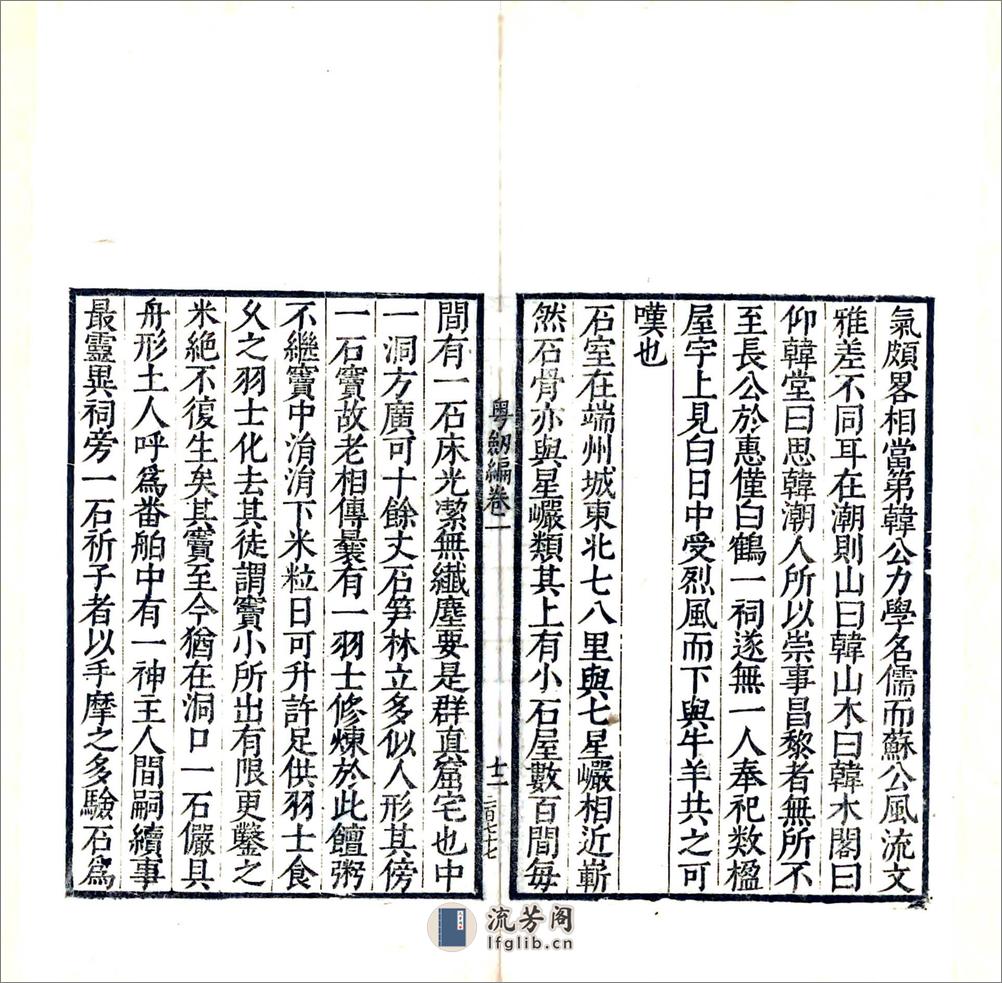 氣頗畧相當第韓公力學名儒而蘇公風流文
雅差不同耳在潮則山曰韓山木曰韓木閣曰
仰韓堂曰思韓潮人所以崇事昌黎者無所不
至長公於惠僅白鶴一祠遂無一人奉祀数楹
屋字上見白日中受烈風而下與牛羊共之可
嘆也
石室在端州城東北七八里與七星巖相近嶄
然石骨亦與星巖類其上有小石屋數百間每
粤劒編卷二
十二
二百七十七
間有一石床光潔無纖塵要是群真窟宅也中
一洞方廣可十餘丈石笋林立多似人形其傍
一石竇故老相傳曩有一羽士修煉於此饘粥
不繼竇中涓涓下米粒日可升許足供羽士食
久之羽士化去其徒謂竇小所出有限更鑿之
米絶不復生矣其竇至今猶在洞口一石儼具
舟形土人呼爲番舶中有一神主人間嗣續事
最靈異祠旁一石祈子者以手摩之多驗石爲
流芳阁
lfglib.cn